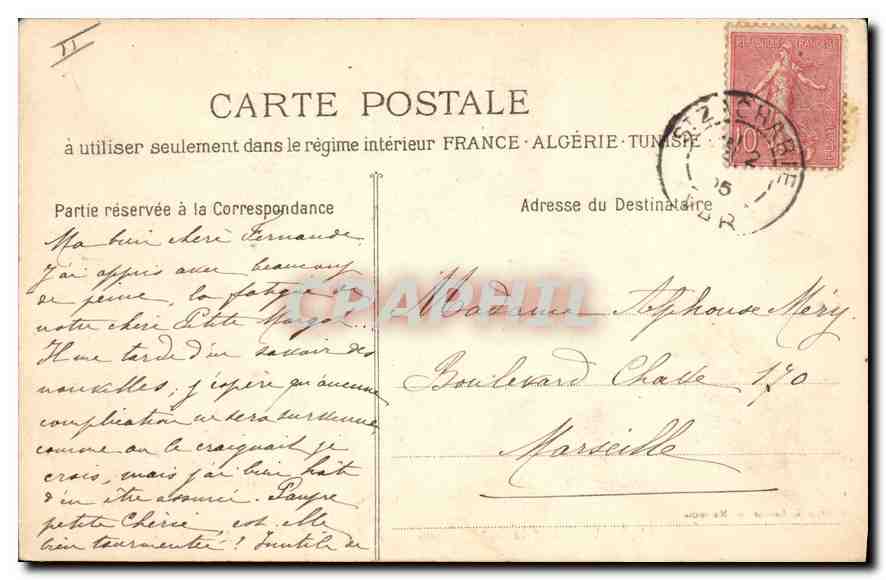 II
REPUBLIQUE FRANCAISE
CARTE POSTALE
à utiliser seulement dans le régime intérieur FRANCE - ALGÉRIE - TUNISIE
10
ST ZACHARIE
2
05
VAR
Partie réservée à la Correspondance
Adresse du Destinataire
Ma bien chère Fernande
J'ai appris avec beaucoup
de peine, la fatigue de
notre chère Petite Margot...
Il me tarde d'en savoir des
nouvelles; j'espère qu'aucune
complication ne sera survenue,
comme on le craignait je
crois, mais j'ai bien hâte
d'en être assuré. Pauvre
petite Chérie, est-elle
bien tourmentée! Inutile de
Madame Alphonse Méry
Boulevard Chave 170
Marseille
CPAPHIL